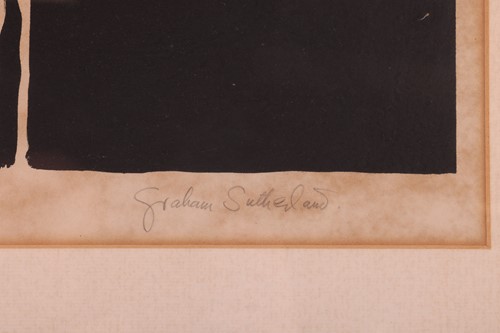 Graham Sutherland.